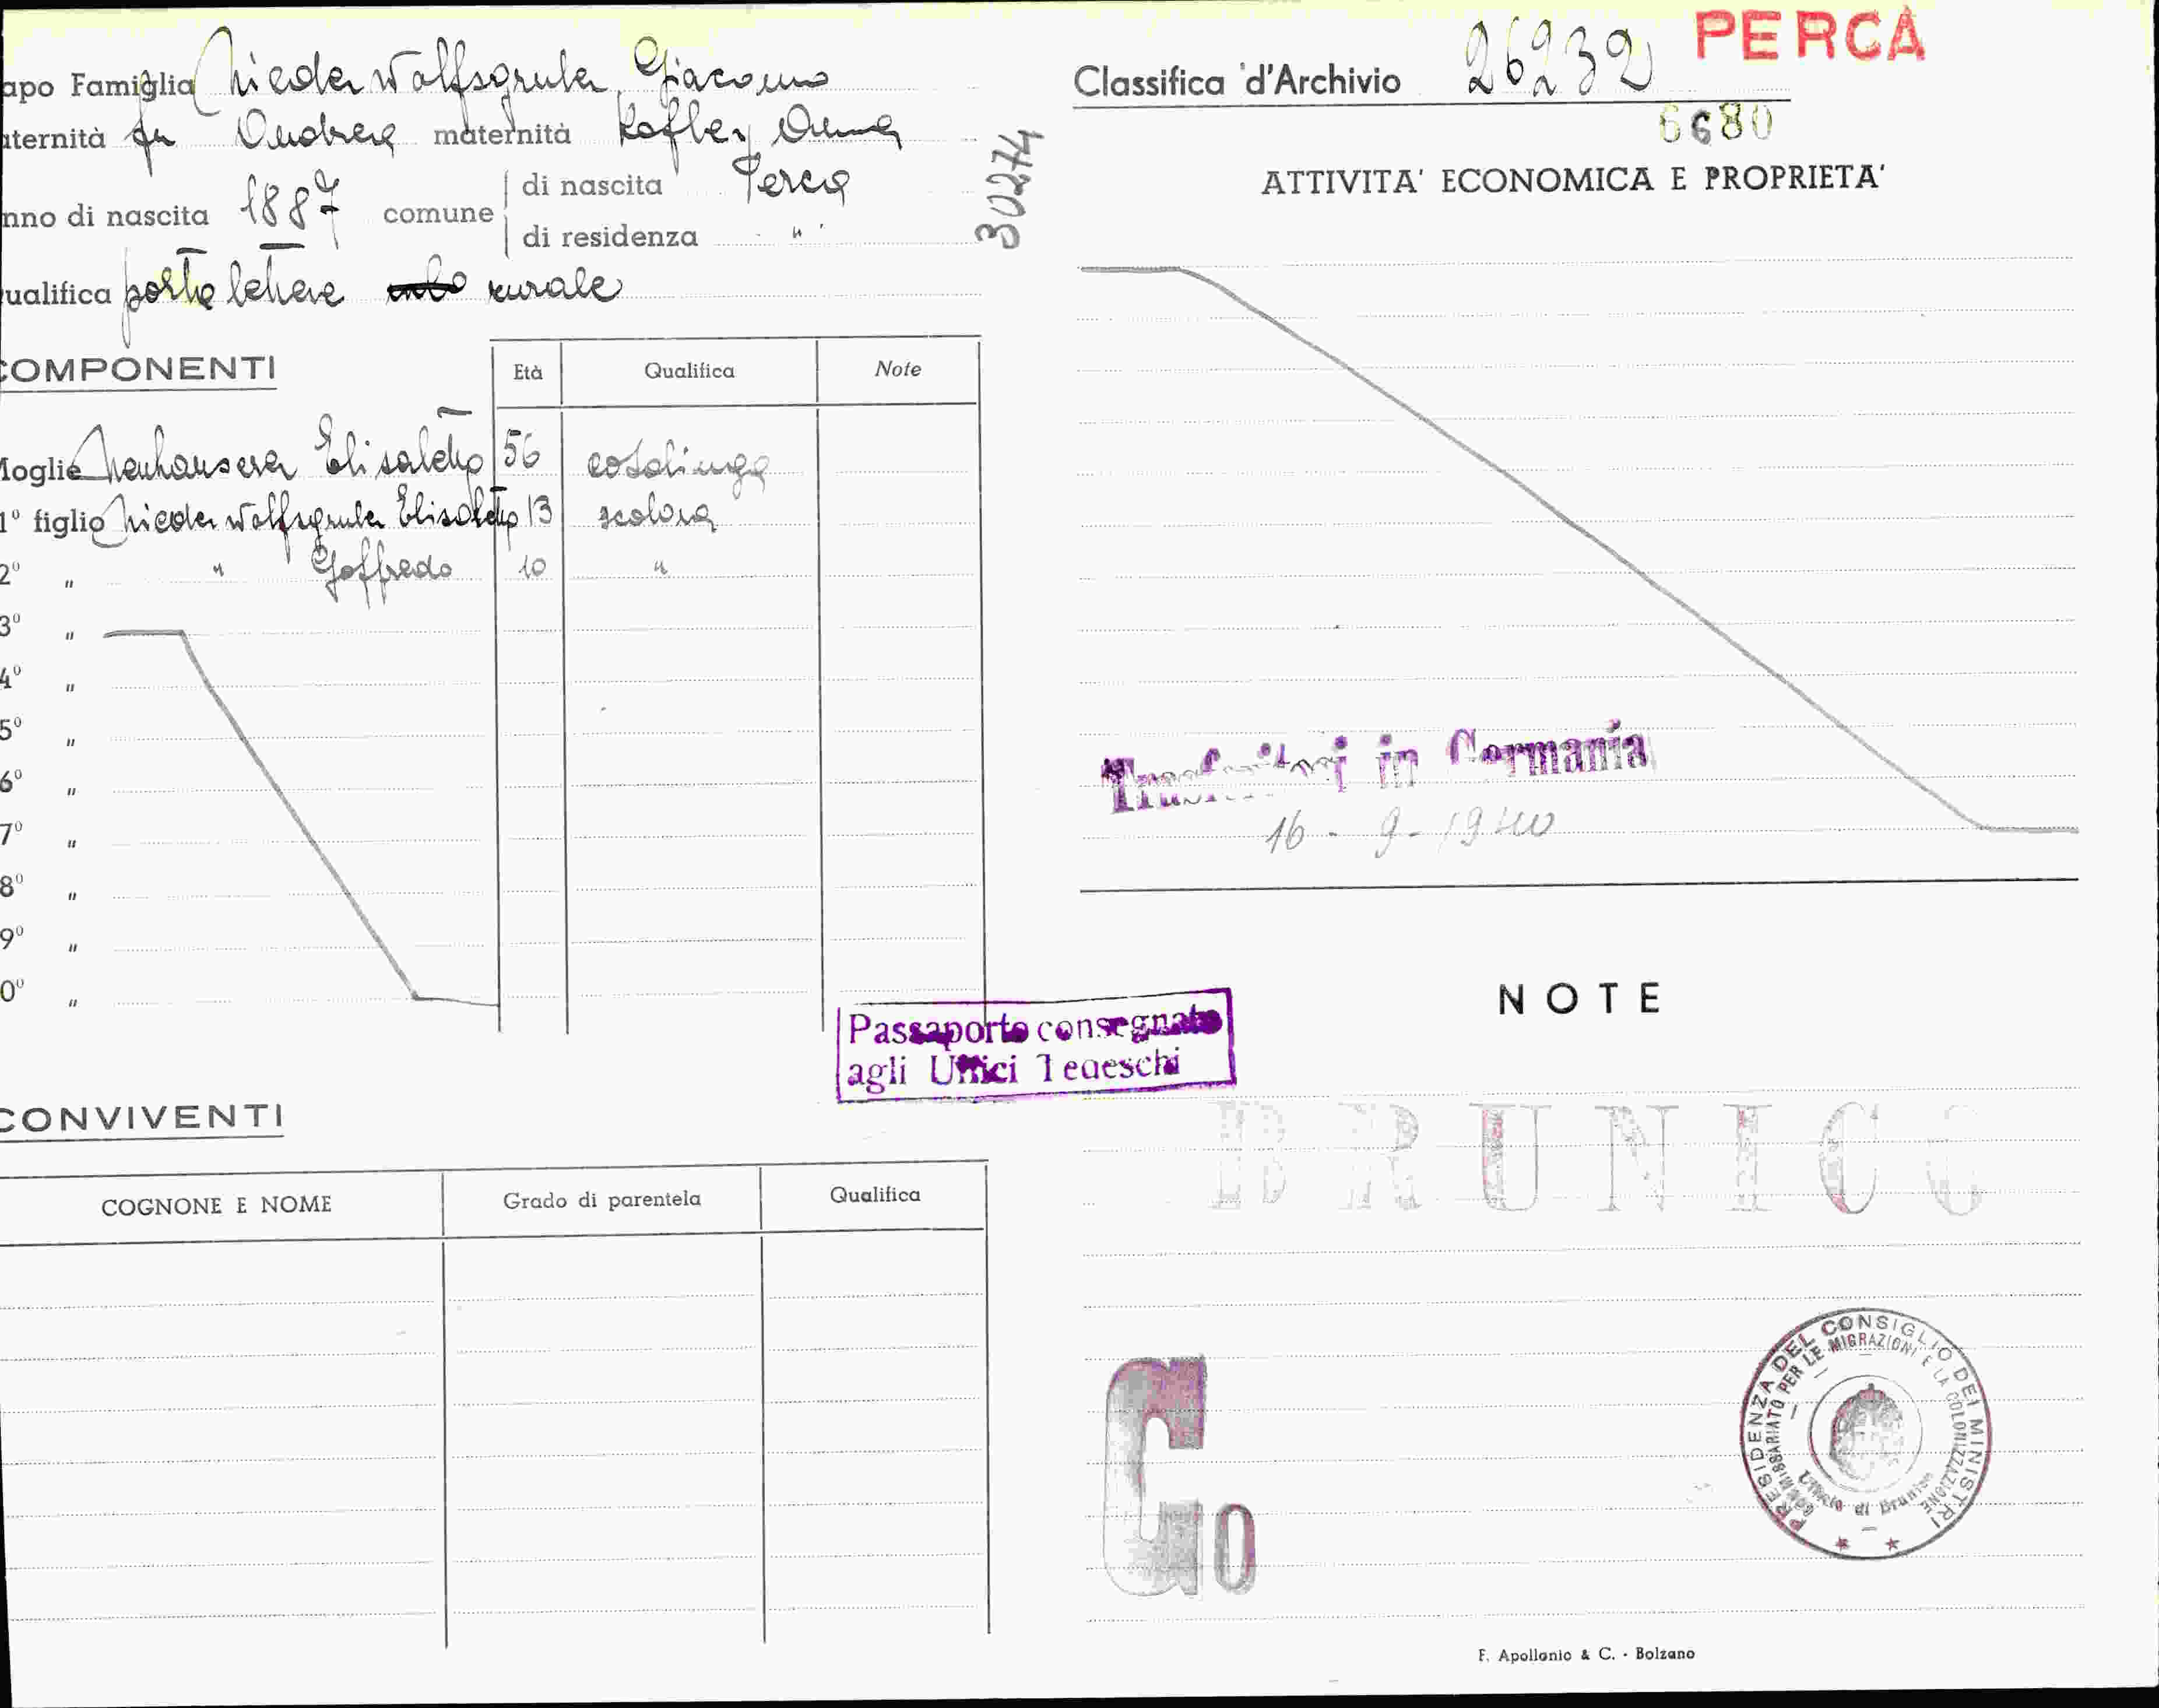 apo Famiglia Niederwolfsgruber Giacomo
aternità fu Andrea maternità Kofler Anna
nno di nascita 1887 comune di nascita Perca
di residenza "
ualifica porta lettere rurale
300274
COMPONENTI
Età Qualifica Note
Moglie Neuhauserer Elisabetta 56 casalinga
1° figlio Niederwolfsgruber Elisabetta 13 scolara
2° " " Goffredo 10 "
3° "
4° "
5° "
6° "
7° "
8° "
9° "
0° "
Passaporto consegnato
agli Uffici Tedeschi
CONVIVENTI
COGNONE E NOME Grado di parentela Qualifica
PERCA
Classifica d'Archivio 26232
6680
ATTIVITA' ECONOMICA E PROPRIETA'
Trasferitosi in Germania
16-9-1940
NOTE
BRUNICO
Go
PRESIDENZA DEL CONSIGLIO DEI MINISTRI
COMMISSARIATO PER LE MIGRAZIONI E LA COLONIZZAZIONE
Ufficio di Brunico
F. Apollonio & C. - Bolzano